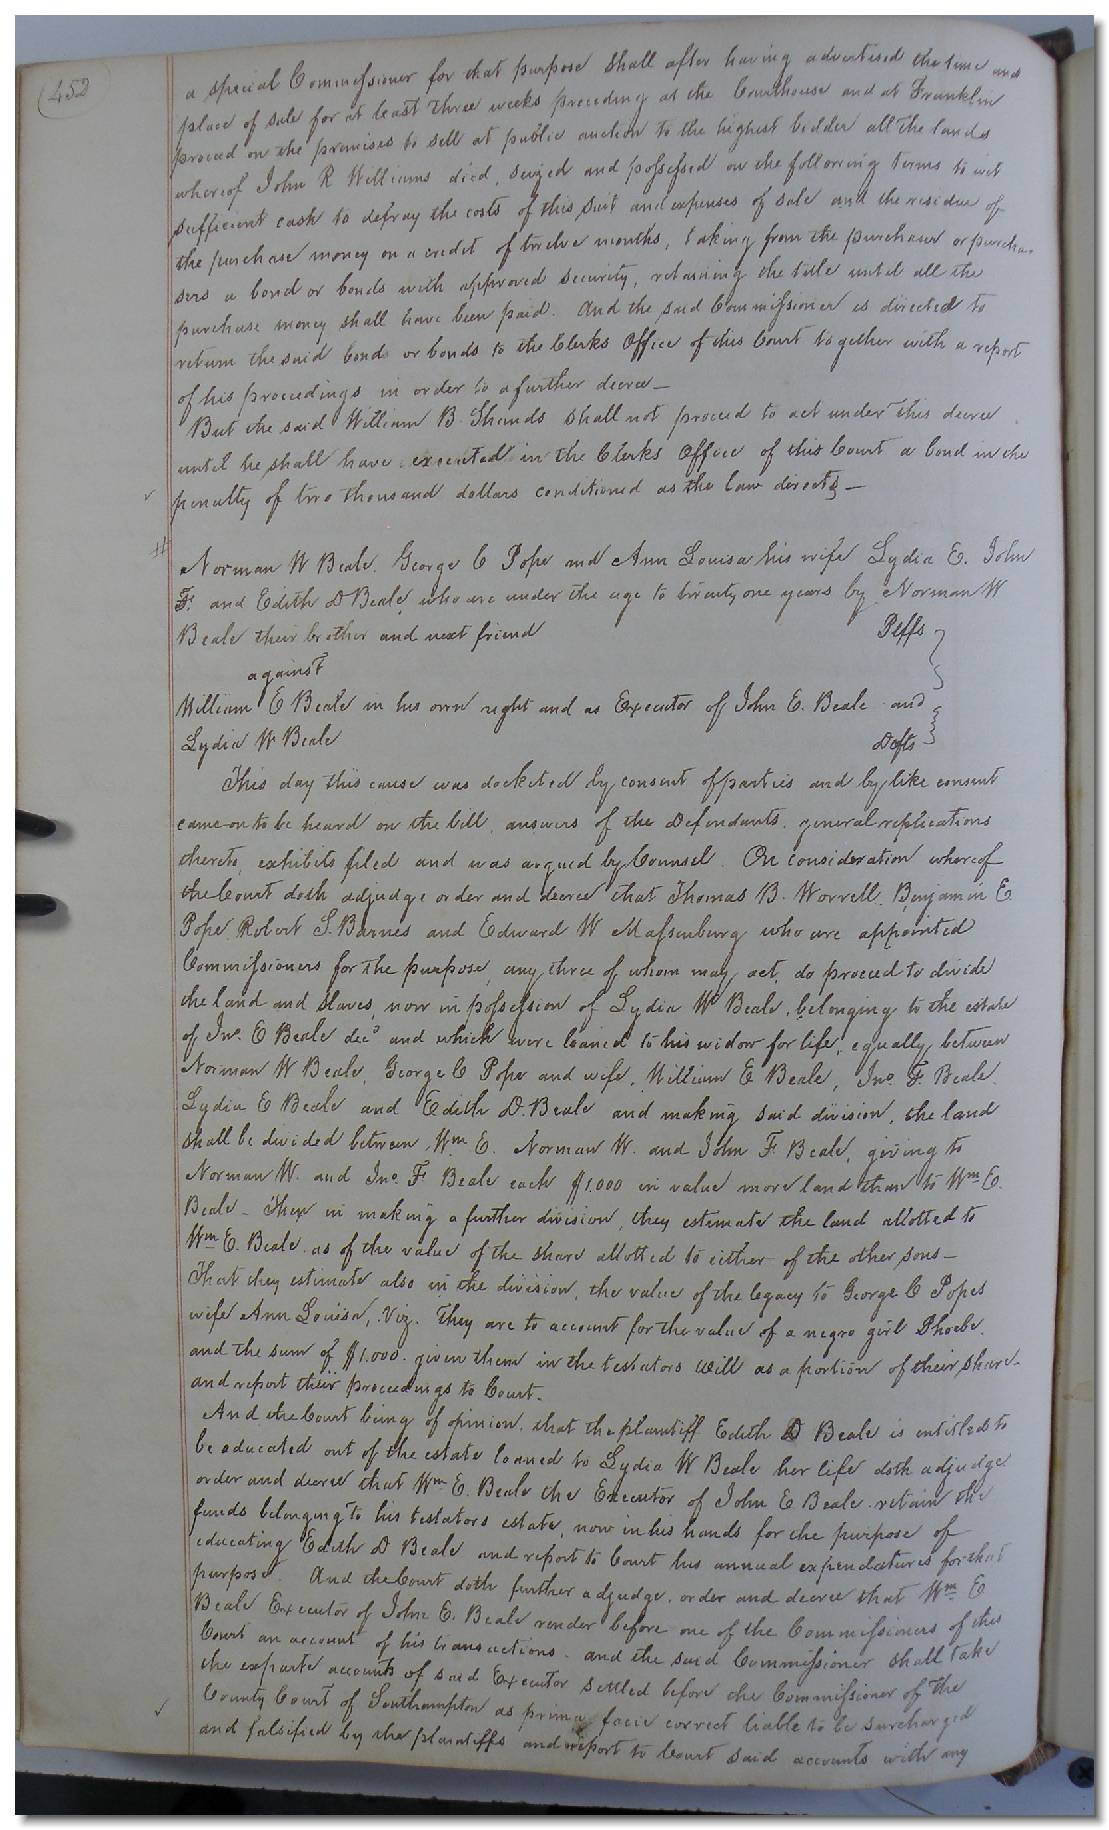 452
a special Commissioner for that purpose shall after having advertised the time and
place of sale for at least three weeks preceding at the Courthouse and at Franklin
proceed on the premises to sell at public auction to the highest bidder all the lands
whereof John R Williams died, seized and possessed on the following terms to wit
sufficient cash to defray the costs of this suit and expenses of sale and the residue of
the purchase money on a credit of twelve months, taking from the purchaser or purcha-
sers a bond or bonds with approved security, retaining the title until all the
purchase money shall have been paid. And the said Commissioner is directed to
return the said bonds or bonds to the Clerks Office of this Court together with a report
of his proceedings in order to a further decree—
But the said William B. Shands shall not proceed to act under this decree
until he shall have executed in the Clerks Office of this Court a bond in the
penalty of two thousand dollars conditioned as the law directs—
Norman W Beale. George C Pope and Ann Louisa his wife Lydia E. John
F. and Edith D Beale who are under the age to twenty one years by Norman W
Beale their brother and next friend Plffs
against
William E Beale in his own right and as Executor of John E. Beale and
Lydia W Beale Defts
This day this cause was docketed by consent of parties and by like consent
came on to be heard on the bill, answers of the Defendants. general replications
thereto, exhibits filed and was argued by Counsel. On consideration whereof
the Court doth adjudge order and decree that Thomas B. Worrell. Benjamin E.
Pope. Robert S. Barnes and Edward W Massenburg who are appointed
Commissioners for the purpose, any three of whom may act, do proceed to divide
the land and slaves, now in possession of Lydia W Beale, belonging to the estate
of Jno. E Beale decd and which were loaned to his widow for life, equally between
Norman W Beale, George C Pope and wife, William E Beale, Jno. F. Beale.
Lydia E Beale and Edith D. Beale and making said division, the land
shall be divided between Wm E. Norman W. and John F. Beale, giving to
Norman W. and Jno. F Beale each $1.000 in value more land than to Wm E.
Beale – Then in making a further division, they estimate the land allotted to
Wm E. Beale as of the value of the share allotted to either of the other sons—
That they estimate also in the division, the value of the legacy to George C Popes
wife Ann Louisa, Viz. They are to account for the value of a negro girl Phoebe.
and the sum of $1.000. given them in the testators will as a portion of their share-
and report their proceedings to Court.
And the Court being of opinion, that the plaintiff Edith D Beale is entitled to
be educated out of the estate loaned to Lydia W Beale her life doth adjudge
order and decree that Wm E. Beale the Executor of John E Beale retain the
funds belonging to his testators estate, now in his hands for the purpose of
educating Edith D Beale and report to Court his annual expenditures for that
purpose. And the Court doth further adjudge. order and decree that Wm E
Beale Executor of John E. Beale render before one of the Commissioners of this
Court an account of his transactions. and the said Commissioner shall take
the exparte accounts of said Executor settled before the Commissioner of the
County Court of Southampton as prima facie correct liable to be surcharged
and falsified by the plaintiffs and report to Court said accounts with any